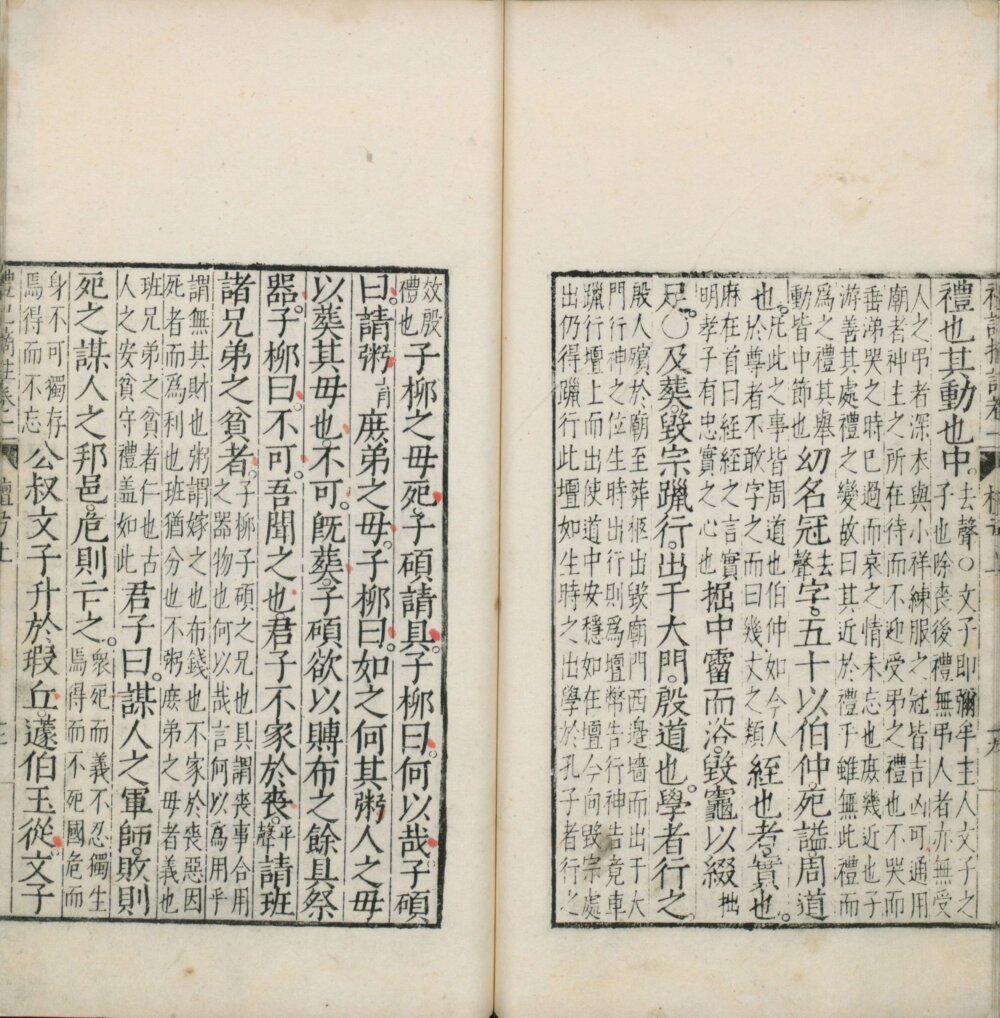 禮也其動也中去聲○文子即彌牟主人文子之
子也除喪後禮無弔人者亦無受
人之弔者深衣與小祥練服之冠皆吉凶可通用
廟者神主之所在待而不迎受弔之禮也不哭而
垂涕哭之時已過而哀之情未忘也庶幾近也子
游善其處禮之變故曰其近於禮乎雖無此禮而
為之禮其舉
動皆中節也
幼名冠去聲字五十以伯仲死諡周道
也此之事皆周道也伯仲如今人
於尊者不敢字之而曰幾丈之類
絰也者實也
麻在首曰絰絰之言實
明孝子有忠實之心也
掘中霤而浴毀竈以綴拙
足○及葬毀宗躐行出于大門殷道也學者行之
殷人殯於廟至葬柩出毀廟門西邊墻而出于大
門行神之位生時出行則為壇幣告行神告竟車
躐行壇上而出使道中安穩如在壇今向毀宗處
出仍得躐行此壇如生時之出學於孔子者行之
效殷
禮也
子柳之毋死子碩請具子柳曰何以哉子碩
曰請粥育庶弟之毋子柳曰如之何其粥人之毋
以葬其毋也不可既葬子碩欲以賻布之餘具祭
器子柳曰不可吾聞之也君子不家於喪平聲請班
諸兄弟之貧者子柳子碩之兄也具謂喪事合用
之器物也何以哉言何以為用乎
謂無其財也粥謂嫁之也布錢也不家於喪惡因
死者而為利也班猶分也不粥庶弟之毋者義也
班兄弟之貧者仁也古
人之安貧守禮蓋如此
君子曰謀人之軍師敗則
死之謀人之邦邑危則亡之衆死而義不忍獨生
焉得而不死國危而
身不可獨存
焉得而不忘
公叔文子升於瑕丘蘧伯玉從文子